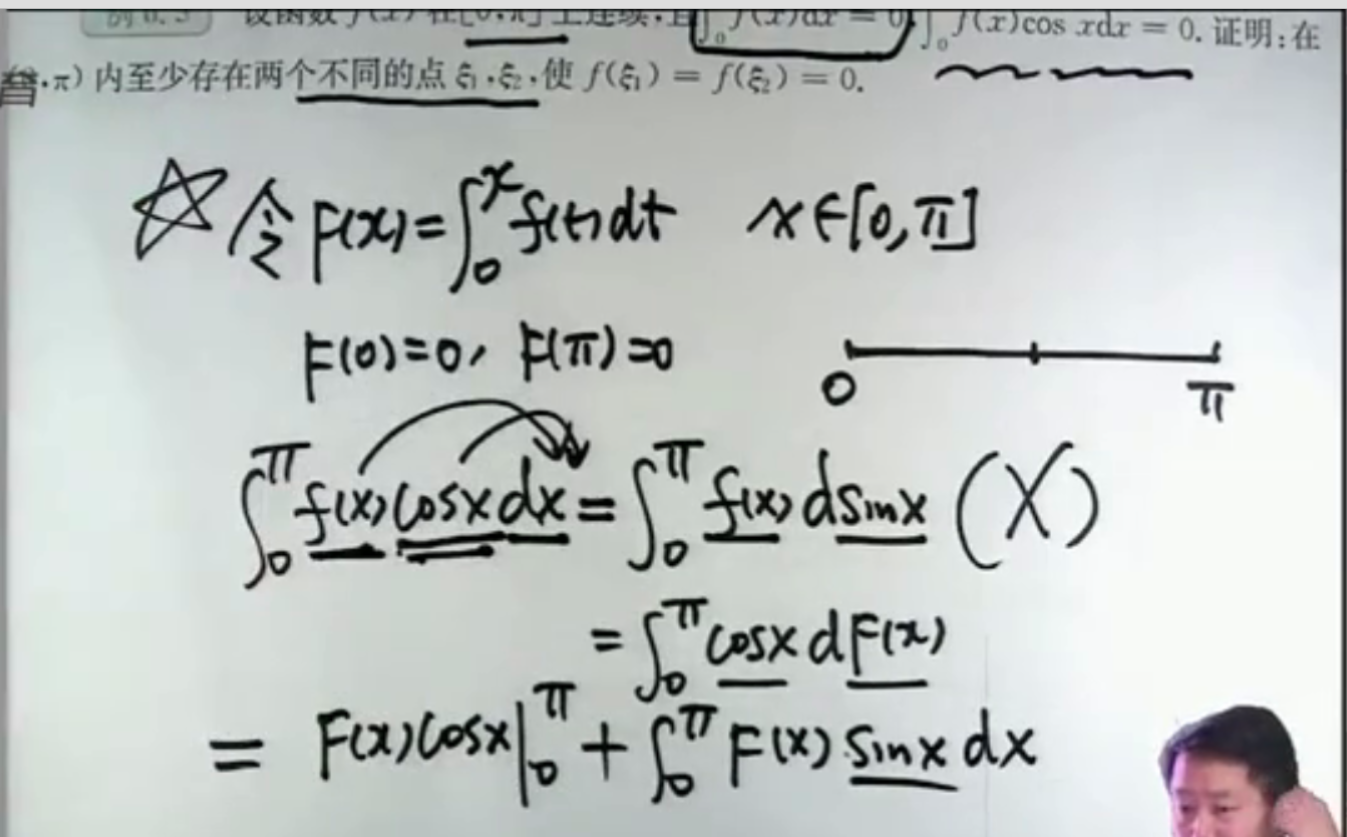 例6.5 设函数 f(x) 在[0,π]上连续,且∫₀ f(x)dx = 0,∫₀ f(x)cos xdx = 0. 证明:在
,π) 内至少存在两个不同的点 ξ₁,ξ₂,使 f(ξ₁) = f(ξ₂) = 0.
☆ 令 F(x)=∫₀ˣ f(t)dt x∈[0,π]
F(0)=0, F(π)=0
0 π
∫₀^π f(x)cosxdx=∫₀^π f(x)dsinx (X)
=∫₀^π cosxdF(x)
= F(x)cosx|₀^π + ∫₀^π F(x) sinx dx